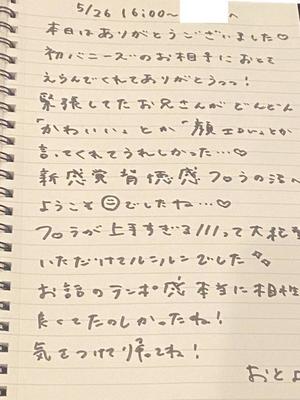 5/26 16:00~ へ
本日はありがとうございました♡
初バニーズのお相手におとを
えらんでくれてありがとうっっ!
緊張してたお兄さんがどんどん
「かわいい」とか「顔エロい」とか
言ってくれてうれしかった…♡
新感覚背徳感フロラの沼へ
ようこそ㊁でしたね…♡
フロラが上手すぎる///って大絶
いただけてルンルンでした
お話のテンポ感本当に相性
良くてたのしかったね!
気をつけて帰ってね!
おとよ